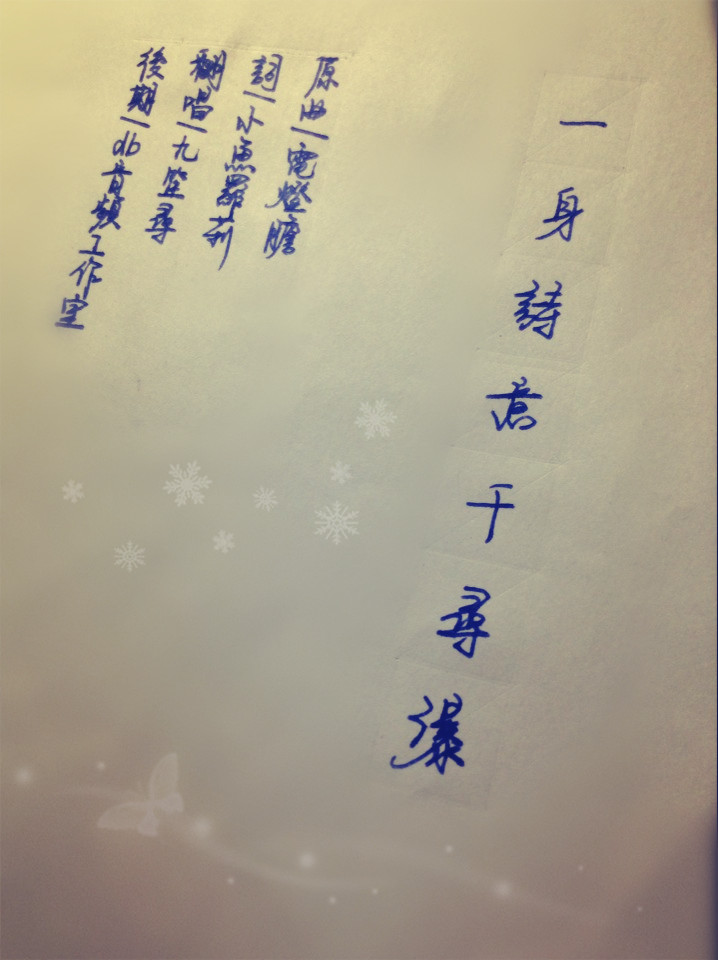 一身詩意千尋瀑
原曲|電燈膽
詞|小魚羅莉
翻唱|九笙尋
後期|db音頻工作室